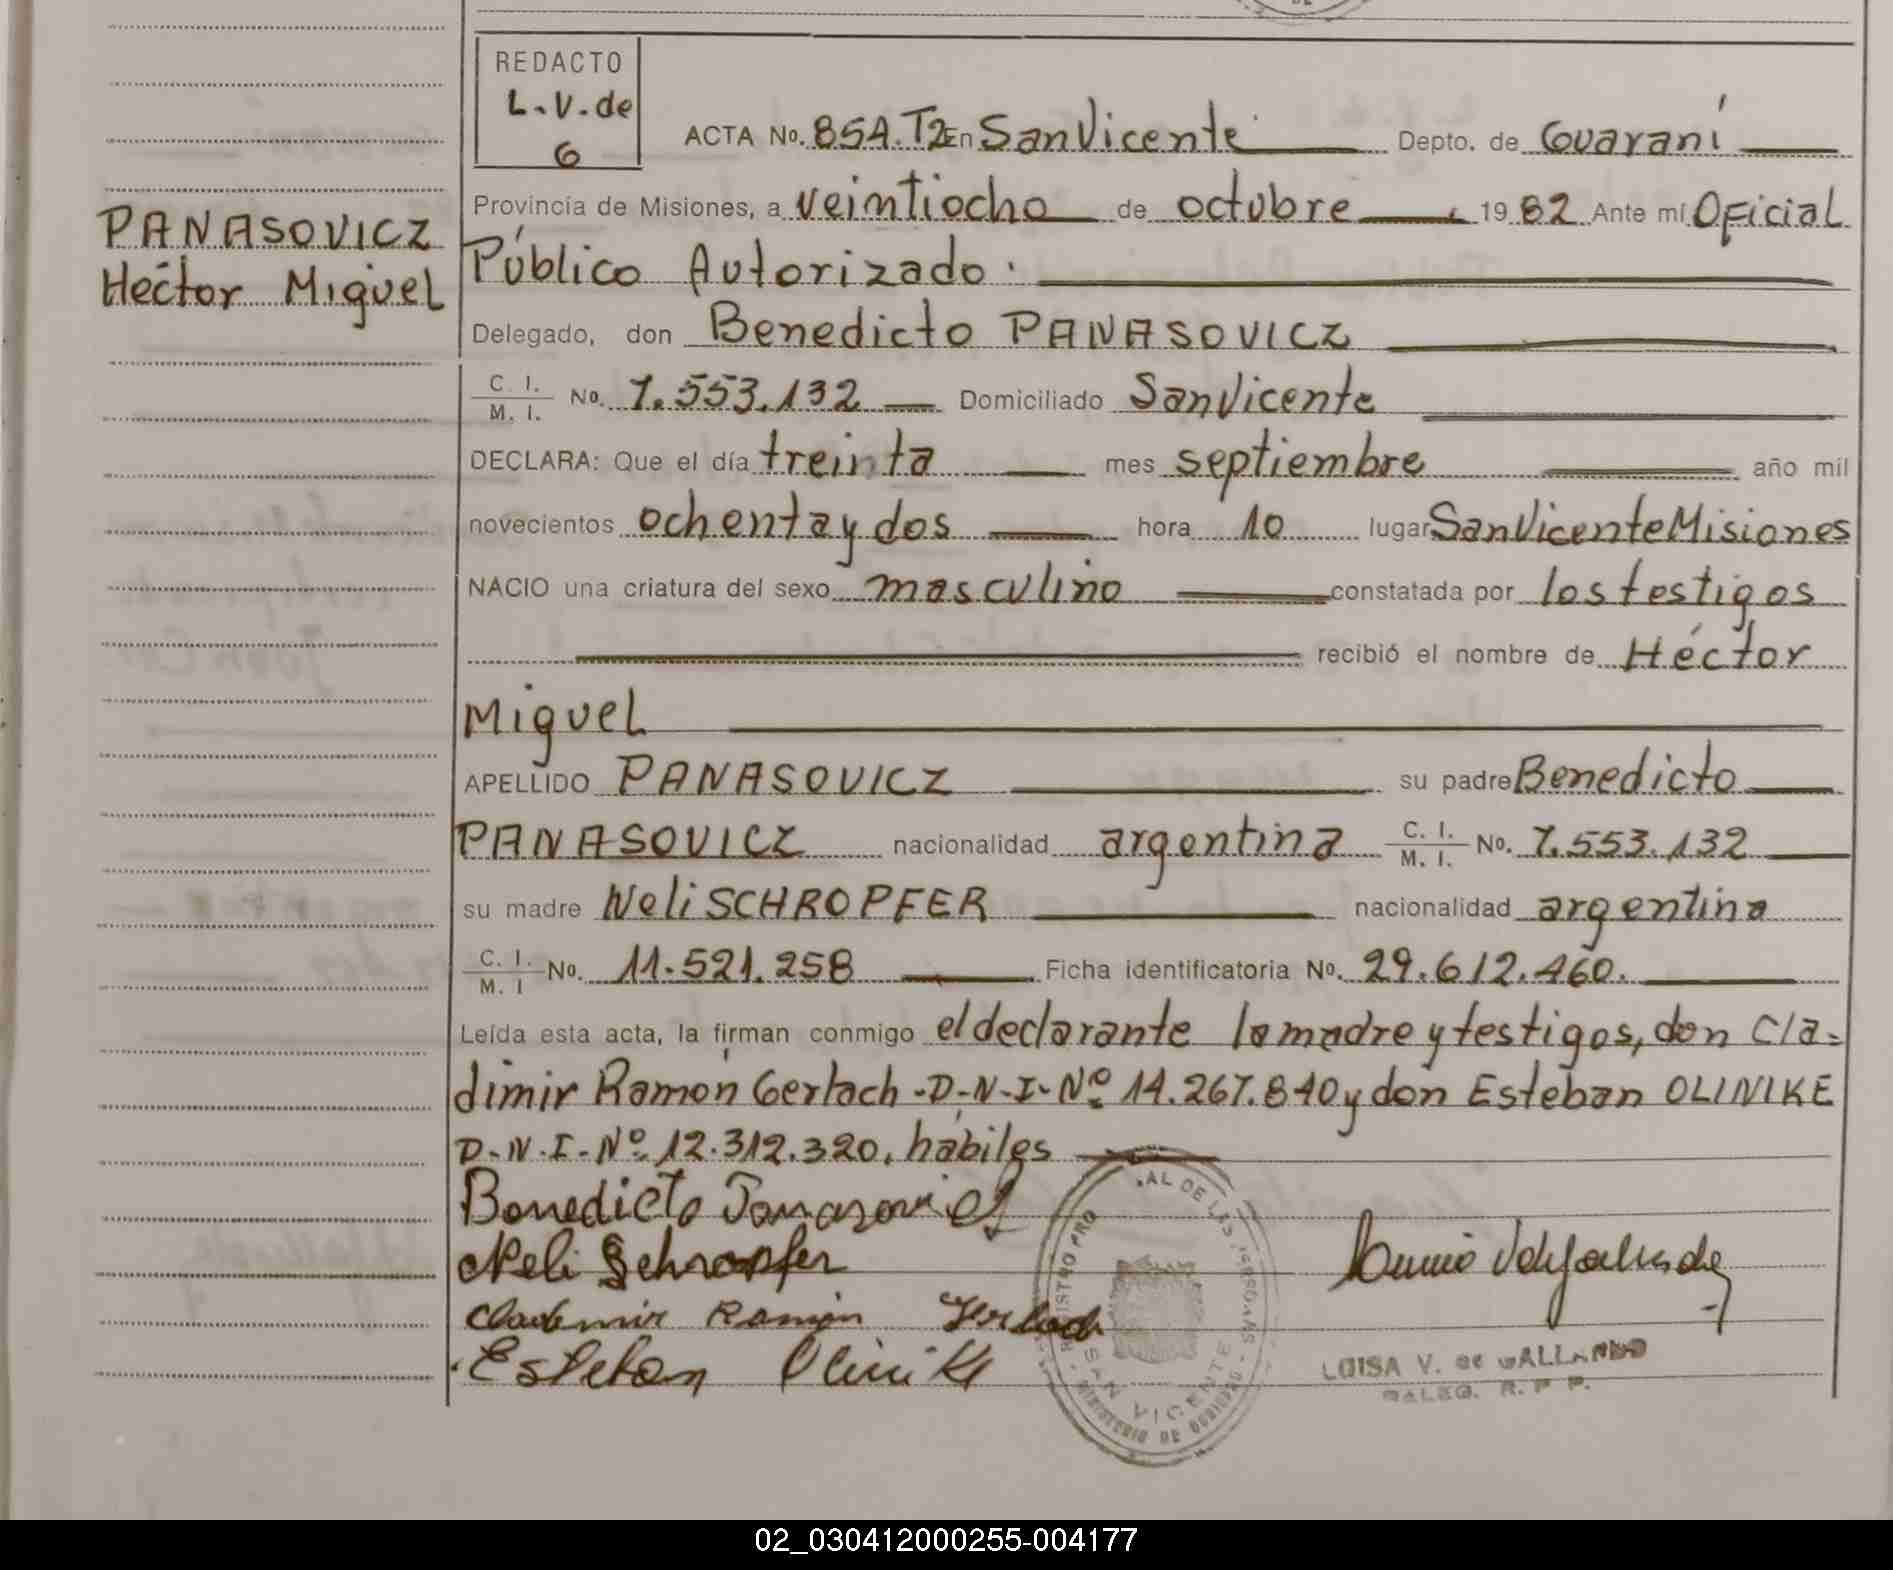 REDACTO
L.V.de
G
ACTA No. 854.T2 En San Vicente Depto. de Guaraní
Provincia de Misiones, a veintiocho de octubre 1982 Ante mí Oficial
PANASOVICZ
Héctor Miguel
Público Autorizado.
Delegado, don Benedicto PANASOVICZ
C. I. M. I. No. 7.553.132 Domiciliado San Vicente
DECLARA: Que el día treinta mes septiembre año mil
novecientos ochenta y dos hora 10 lugar San Vicente Misiones
NACIO una criatura del sexo masculino constatada por los testigos
recibió el nombre de Héctor
Miguel
APELLIDO PANASOVICZ su padre Benedicto
PANASOVICZ nacionalidad argentina C. I. M. I. No. 7.553.132
su madre Neli SCHROPFER nacionalidad argentina
C. I. M. I No. 11.521.258 Ficha identificatoria No. 29.612.460.
Leída esta acta, la firman conmigo el declarante la madre y testigos, don Cla=
dimir Ramón Gerlach -D-N-I-Nº 14.267.840 y don Esteban OLINIKE
D-N.I-Nº 12.312.320, hábiles
Benedicto
Neli Schropfer
Ramón Gerlach
Esteban
REGISTRO PRO AL DE LAS PERSONAS
SAN VICENTE
MINISTERIO DE GOBIERNO
LUISA V. de GALLARDO
DALEG. R. P. P.
02_030412000255-004177